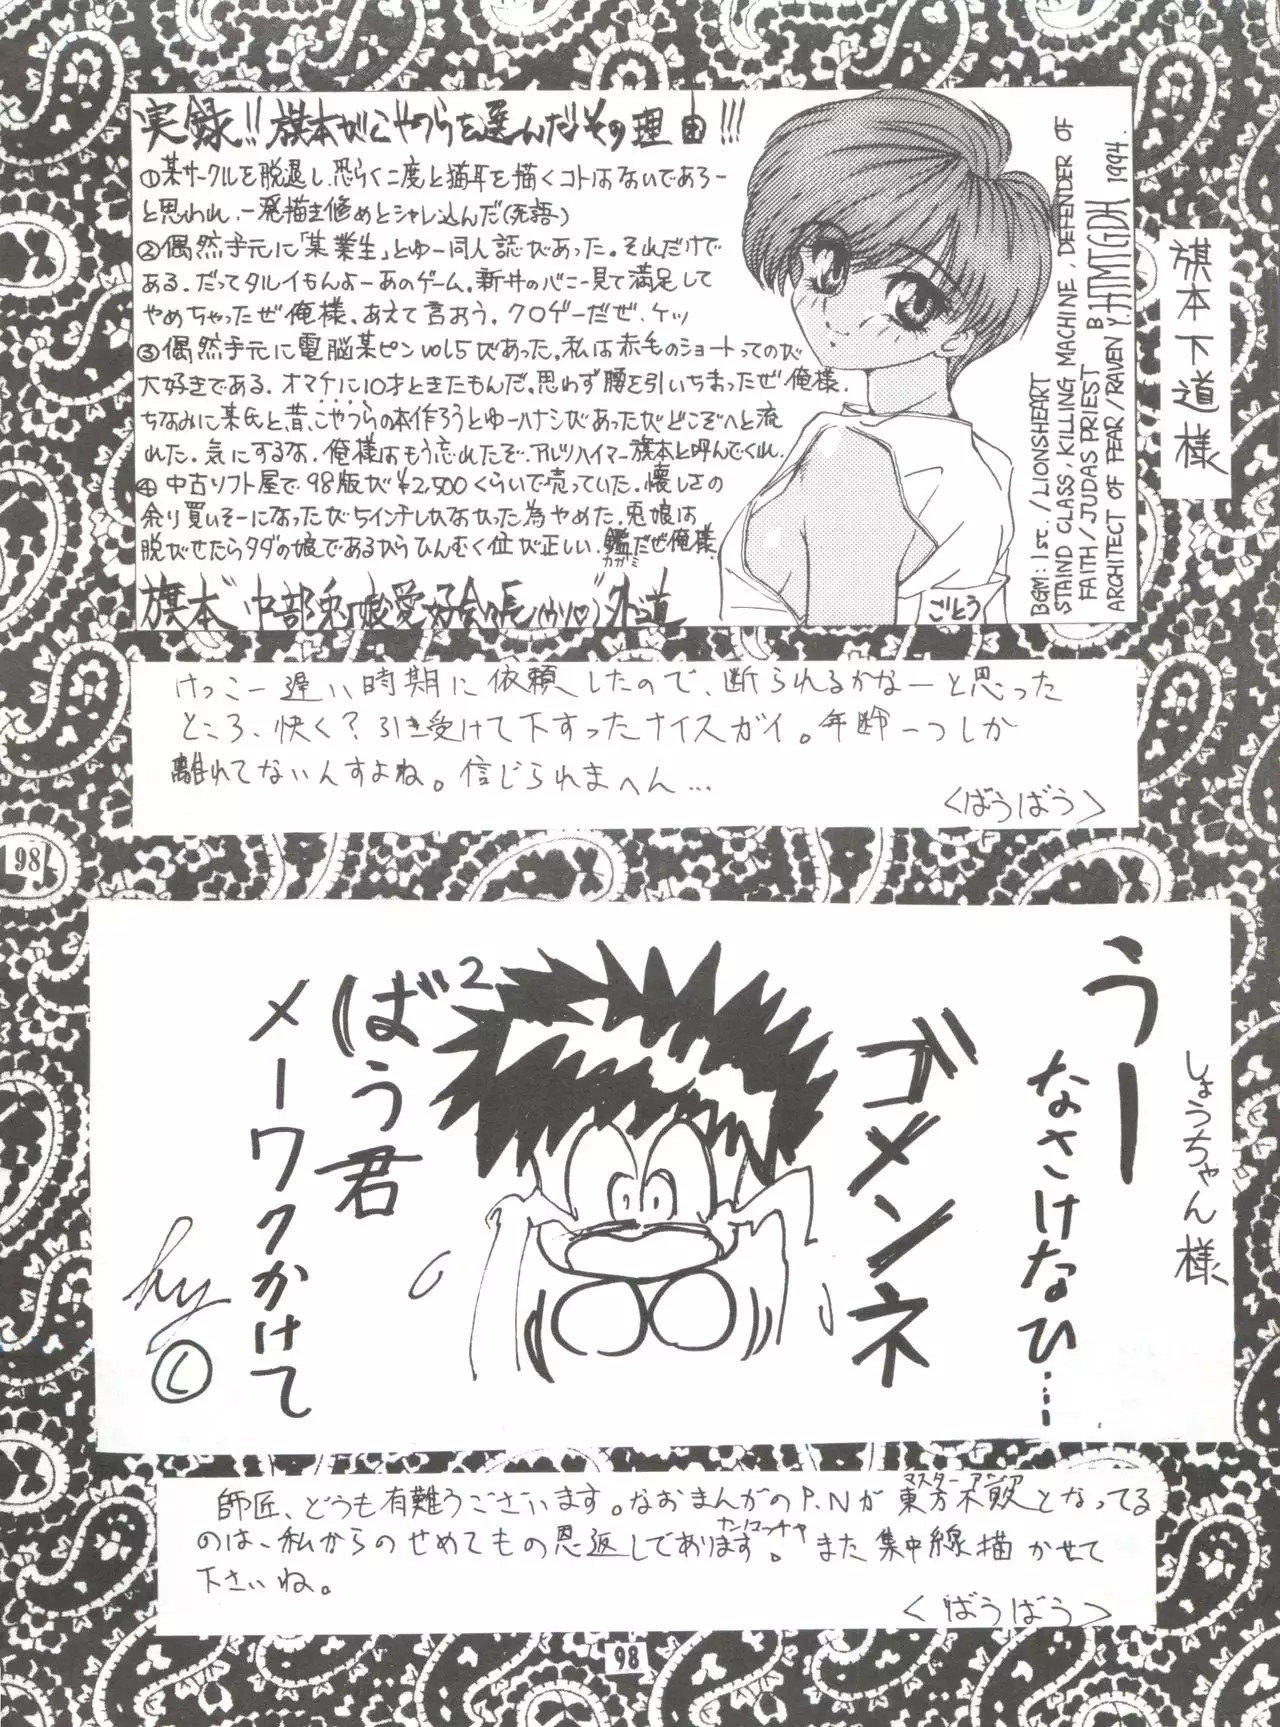 実録!! 旗本がこやつらを選んだその理由!!!
①某サークルを脱退し、恐らく二度と猫耳を描くコトはないであろー
と思われ、一発描き修めとシャレ込んだ(死語)
②偶然手元に「某業生」とゆー同人誌があった。それだけで
ある。だってタルイもんよーあのゲーム。新井のバニー見て満足して
やめちゃったぜ俺様。あえて言おう。クロゲーだぜ、ケッ
③偶然手元に電脳某ピンvol5があった。私は赤毛のショートってのが
大好きである。オマケに10才ときたもんだ。思わず腰を引いちまったぜ俺様。
ちなみに某氏と昔、こやつらの本作ろうとゆーハナシがあったがどこぞへと流
れた。気にするな。俺様はもう忘れたぞ。アルツハイマー旗本と呼んでくれ。
④中古ソフト屋で98版が¥2,500くらいで売っていた。懐しさの
余り買いそーになったが5インチしかなかった為やめた。兎娘は
脱がせたらタダの娘であるからひんむく位が正しい。鑑だぜ俺様
カガミ
旗本 中部兎娘愛好会々長 外道
ごとう
BGM:1st./LIONSHEART
STAIND CLASS, KILLING MACHINE, DEFENDER OF
FAITH/JUDAS PRIEST
ARCHITECT OF FEAR/RAVEN
BY.HTMTGDH 1994.
旗本下道様
けっこー遅い時期に依頼したので、断られるかなーと思った
ところ、快く?引き受けて下すったナイスガイ。年齢一つしか
離れてないんすよね。信じられまへん…
<ばうばう>
98
しょうちゃん様
うー
なさけなひ……
ゴメンネ
ばう²君
メーワクかけて
hy
師匠、どうも有難うございます。なおまんがのP.Nが東方不敗となってる
マスターアジア
のは、私からのせめてもの恩返しであります。また集中線描かせて
ナンコッチャ
下さいね。
<ばうばう>
98